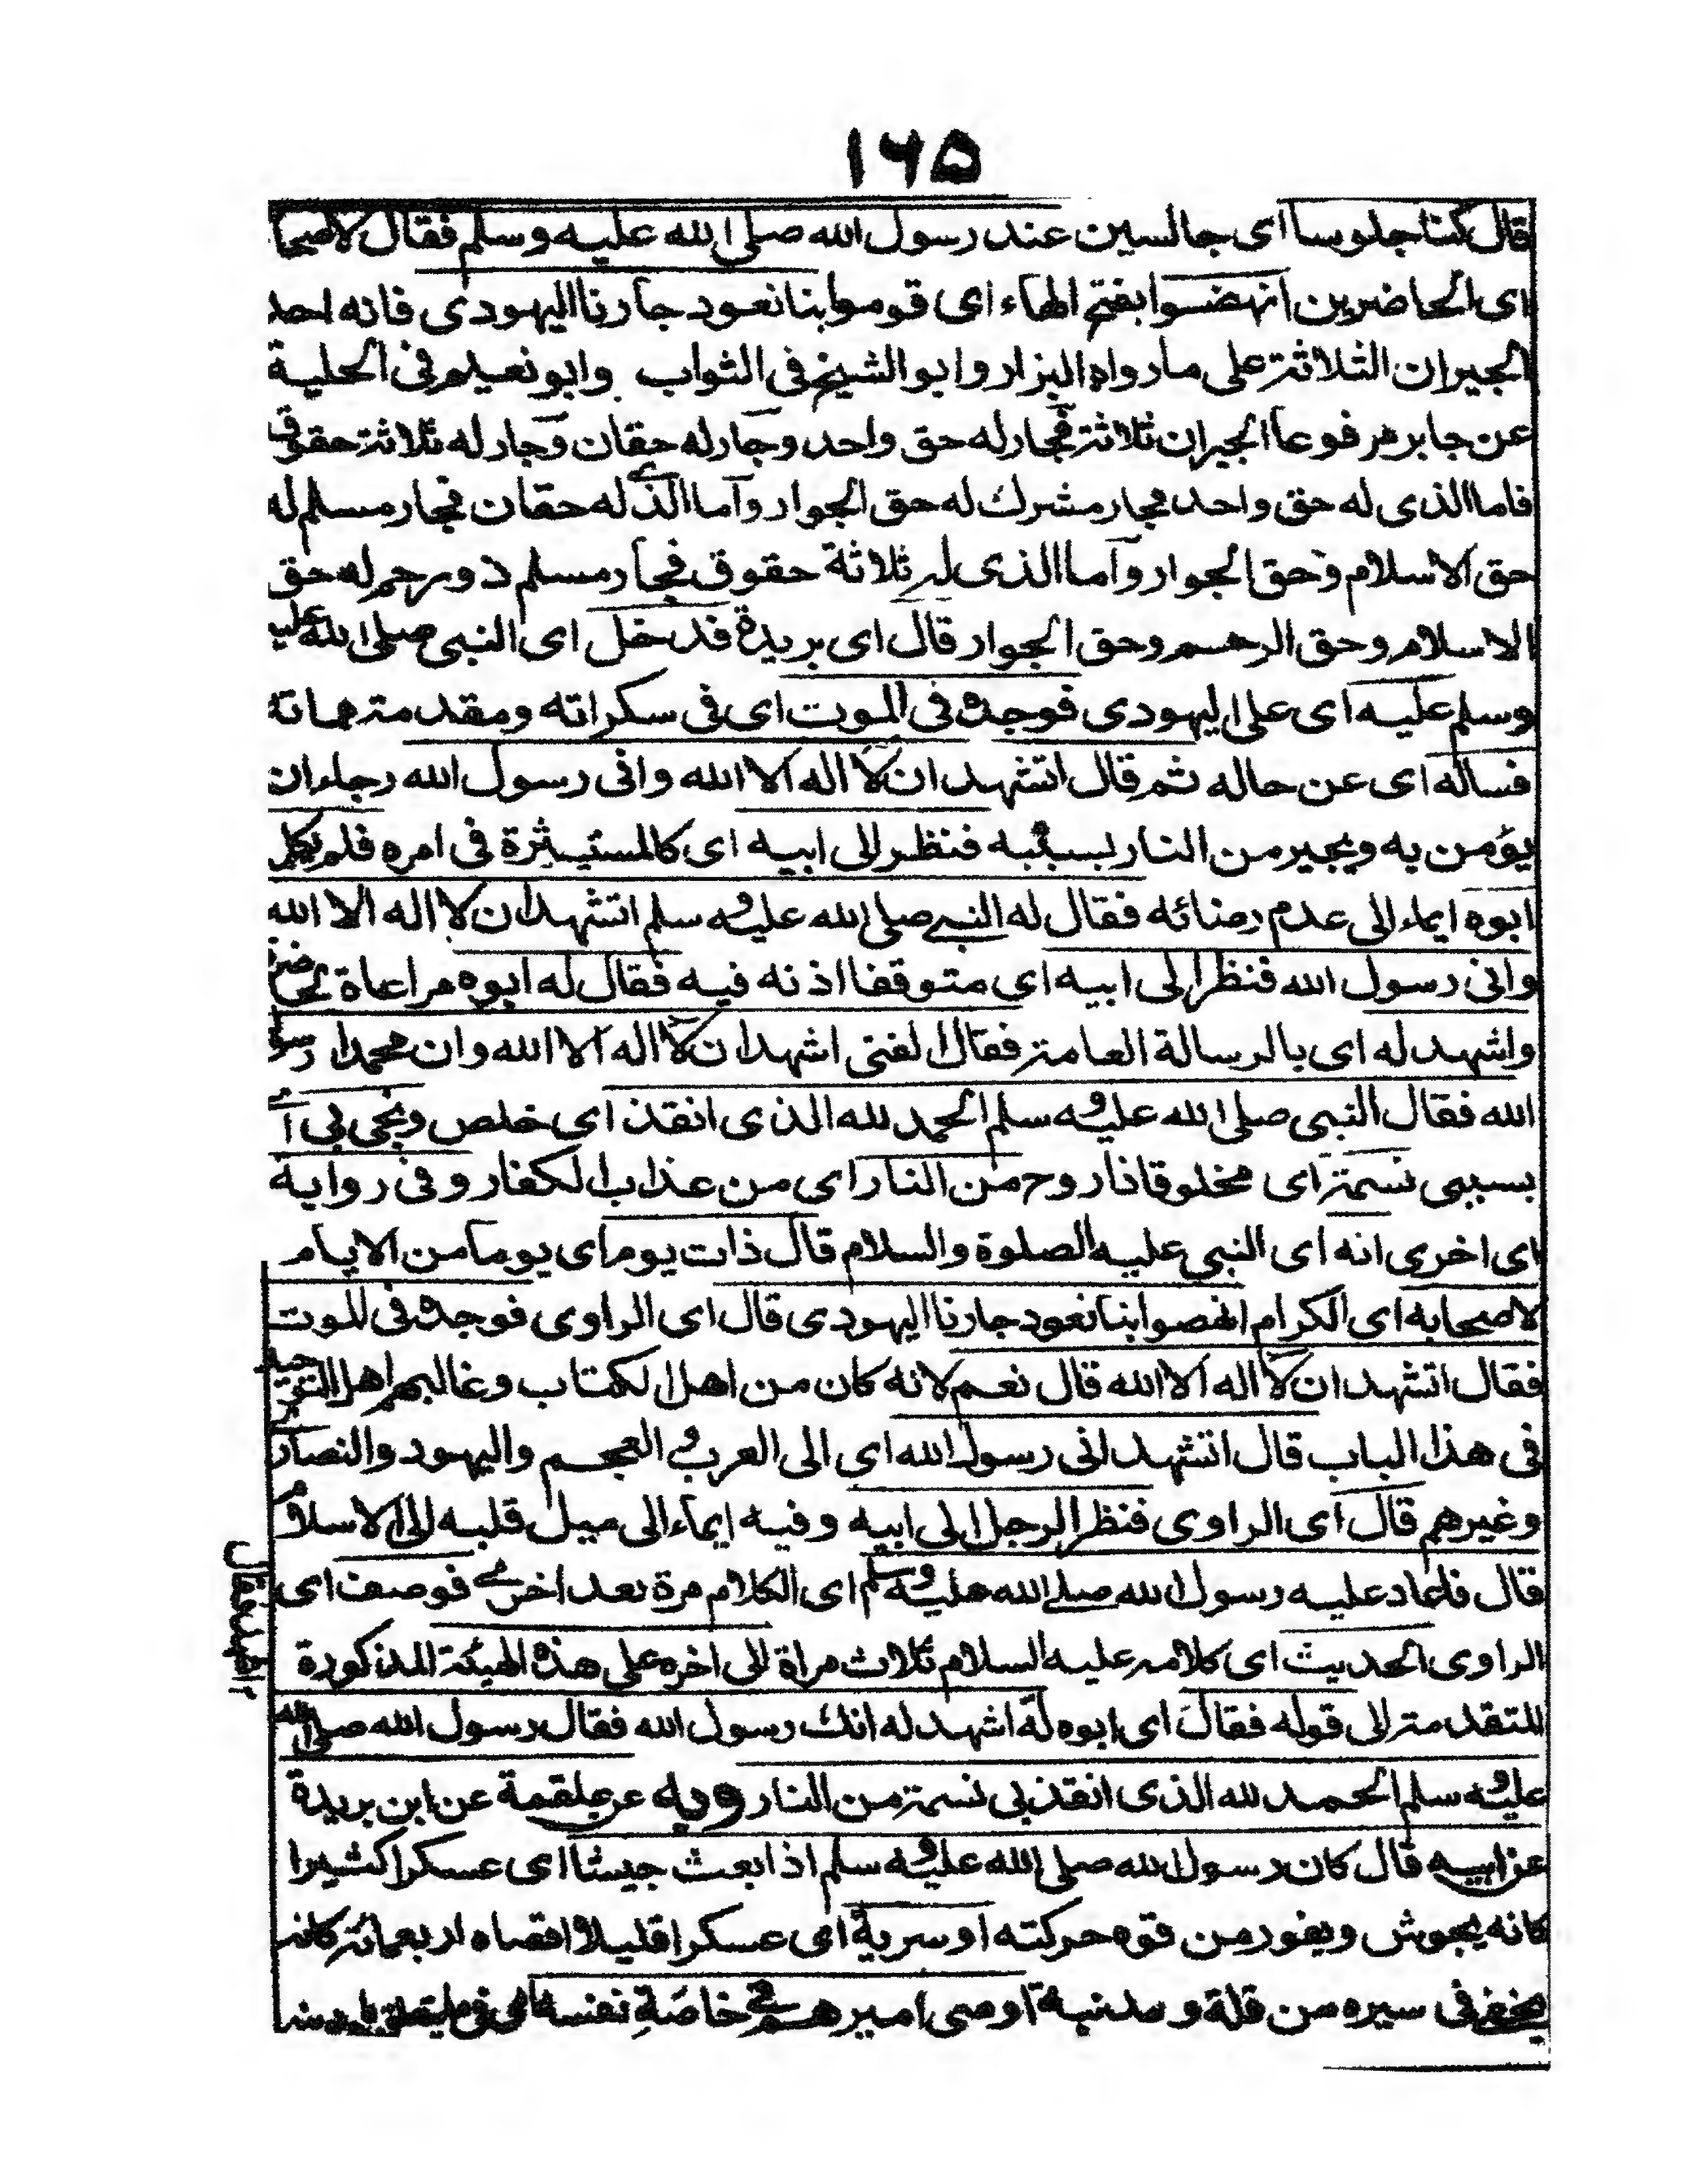 ١٦٥
قال كنا جلوسا اى جالسين عند رسول الله صلى الله عليه وسلم فقال لاصحابه
اى الحاضرين انهضوا بفتح الهاء اى قوموا بنا نعود جارنا اليهودى فانه احد
الجيران الثلاثة على ما رواه البزار وابو الشيخ فى الثواب وابو نعيم فى الحلية
عن جابر مرفوعا الجيران ثلاثة فجار له حق واحد وجار له حقان وجار له ثلاثة حقوق
فاما الذى له حق واحد فجار مشرك له حق الجوار واما الذى له حقان فجار مسلم له
حق الاسلام وحق الجوار واما الذى له ثلاثة حقوق فجار مسلم ذو رحم له حق
الاسلام وحق الرحم وحق الجوار قال اى بريدة فدخل اى النبى صلى الله عليه
وسلم عليه اى على اليهودى فوجده فى الموت اى فى سكراته ومقدمة مماته
فساله اى عن حاله ثم قال اتشهد ان لا اله الا الله وانى رسول الله رجاء ان
يؤمن به ويجير من النار بسببه فنظر الى ابيه اى كالمستشيرة فى امره فلم يكلم
ابوه ايماء الى عدم رضائه فقال له النبى صلى الله عليه وسلم اتشهد ان لا اله الا الله
وانى رسول الله فنظر الى ابيه اى متوقفا اذنه فيه فقال له ابوه مراعاة
واشهد له اى بالرسالة العامة فقال الفتى اشهد ان لا اله الا الله وان محمدا رسول
الله فقال النبى صلى الله عليه وسلم الحمد لله الذى انقذ اى خلص ونجى بى اى
بسببى نسمة اى مخلوقا ذا روح من النار اى من عذاب الكفار وفى رواية
اى اخرى انه اى النبى عليه الصلوة والسلام قال ذات يوم اى يوما من الايام
لاصحابه اى الكرام انهضوا بنا نعود جارنا اليهودى قال اى الراوى فوجده فى الموت
فقال اتشهد ان لا اله الا الله قال نعم لانه كان من اهل الكتاب وغالبهم اهل التوحيد
فى هذا الباب قال اتشهد انى رسول الله اى الى العرب والعجم واليهود والنصارى
وغيرهم قال اى الراوى فنظر الرجل الى ابيه وفيه ايماء الى ميل قلبه الى الاسلام
قال فاعاد عليه رسول الله صلى الله عليه وسلم اى الكلام مرة بعد اخرى فوصف اى
الراوى الحديث اى كلامه عليه السلام ثلاث مراة الى اخره على هذه الهيئة المذكورة
المتقدمة الى قوله فقال اى ابوه له اشهد له انك رسول الله فقال رسول الله صلى الله
عليه وسلم الحمد لله الذى انقذ بى نسمة من النار وبه عن علقمة عن ابن بريدة
عن ابيه قال كان رسول الله صلى الله عليه وسلم اذا بعث جيشا اى عسكرا كثيرا
كانه يجوش ويفور من قوة حركته او سرية اى عسكرا قليلا اقصاه اربعمائة كانه
فى سيره من قلة و اوصى اميرهم فى خاصة نفسه